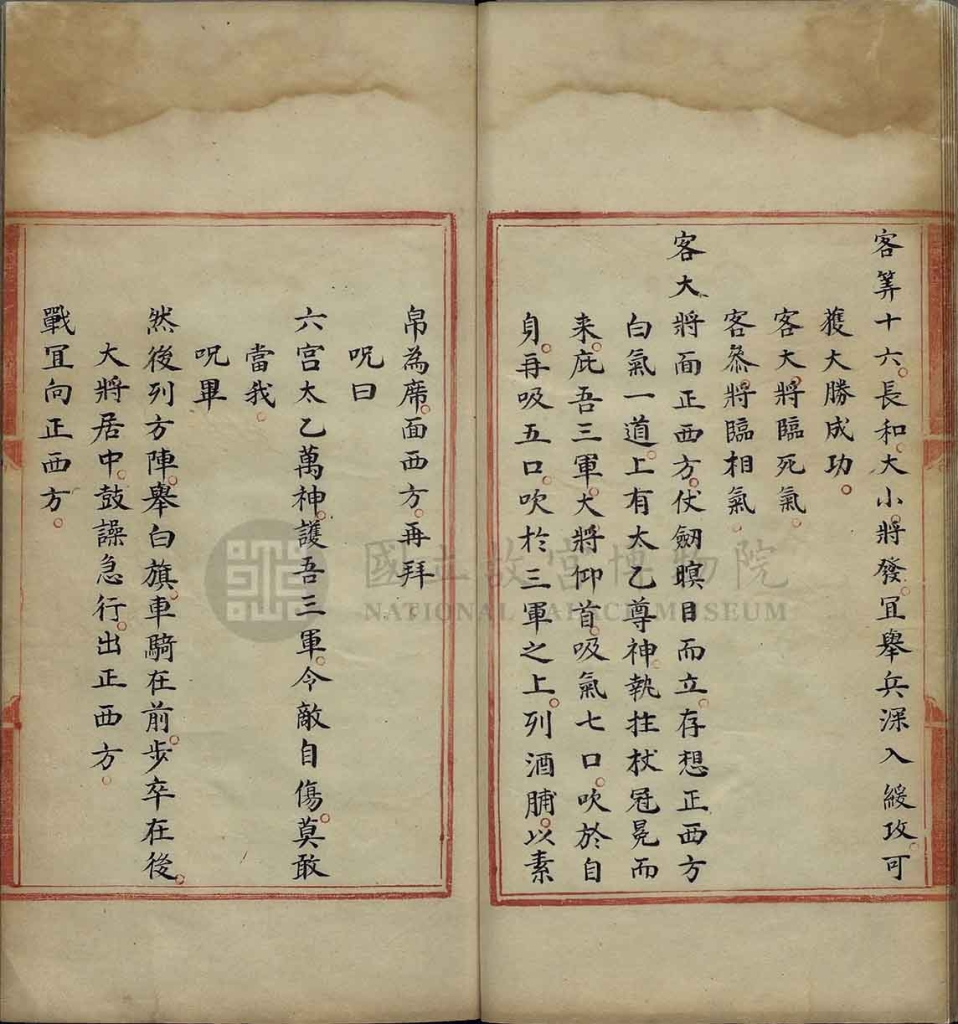 客筭十六。長和。大小將發。冝舉兵深入緩攻。可
獲大勝成功。
客大將臨死氣。
客叅將臨相氣。
客大將面正西方。仗劔瞑目而立。存想正西方
白氣一道。上有太乙尊神。執拄杖冠冕而
来。庇吾三軍。大將仰首。吸氣七口。吹於自
身。再吸五口。吹於三軍之上。列酒脯。以素
帛為席。面西方。再拜
呪曰
六宫太乙萬神。護吾三軍。令敵自傷。莫敢
當我。
呪畢
然後列方陣。舉白旗。車騎在前。步卒在後。
大將居中。鼓譟急行。出正西方。
戰冝向正西方。
國立故宮博物院
NATIONAL PALACE MUSEUM